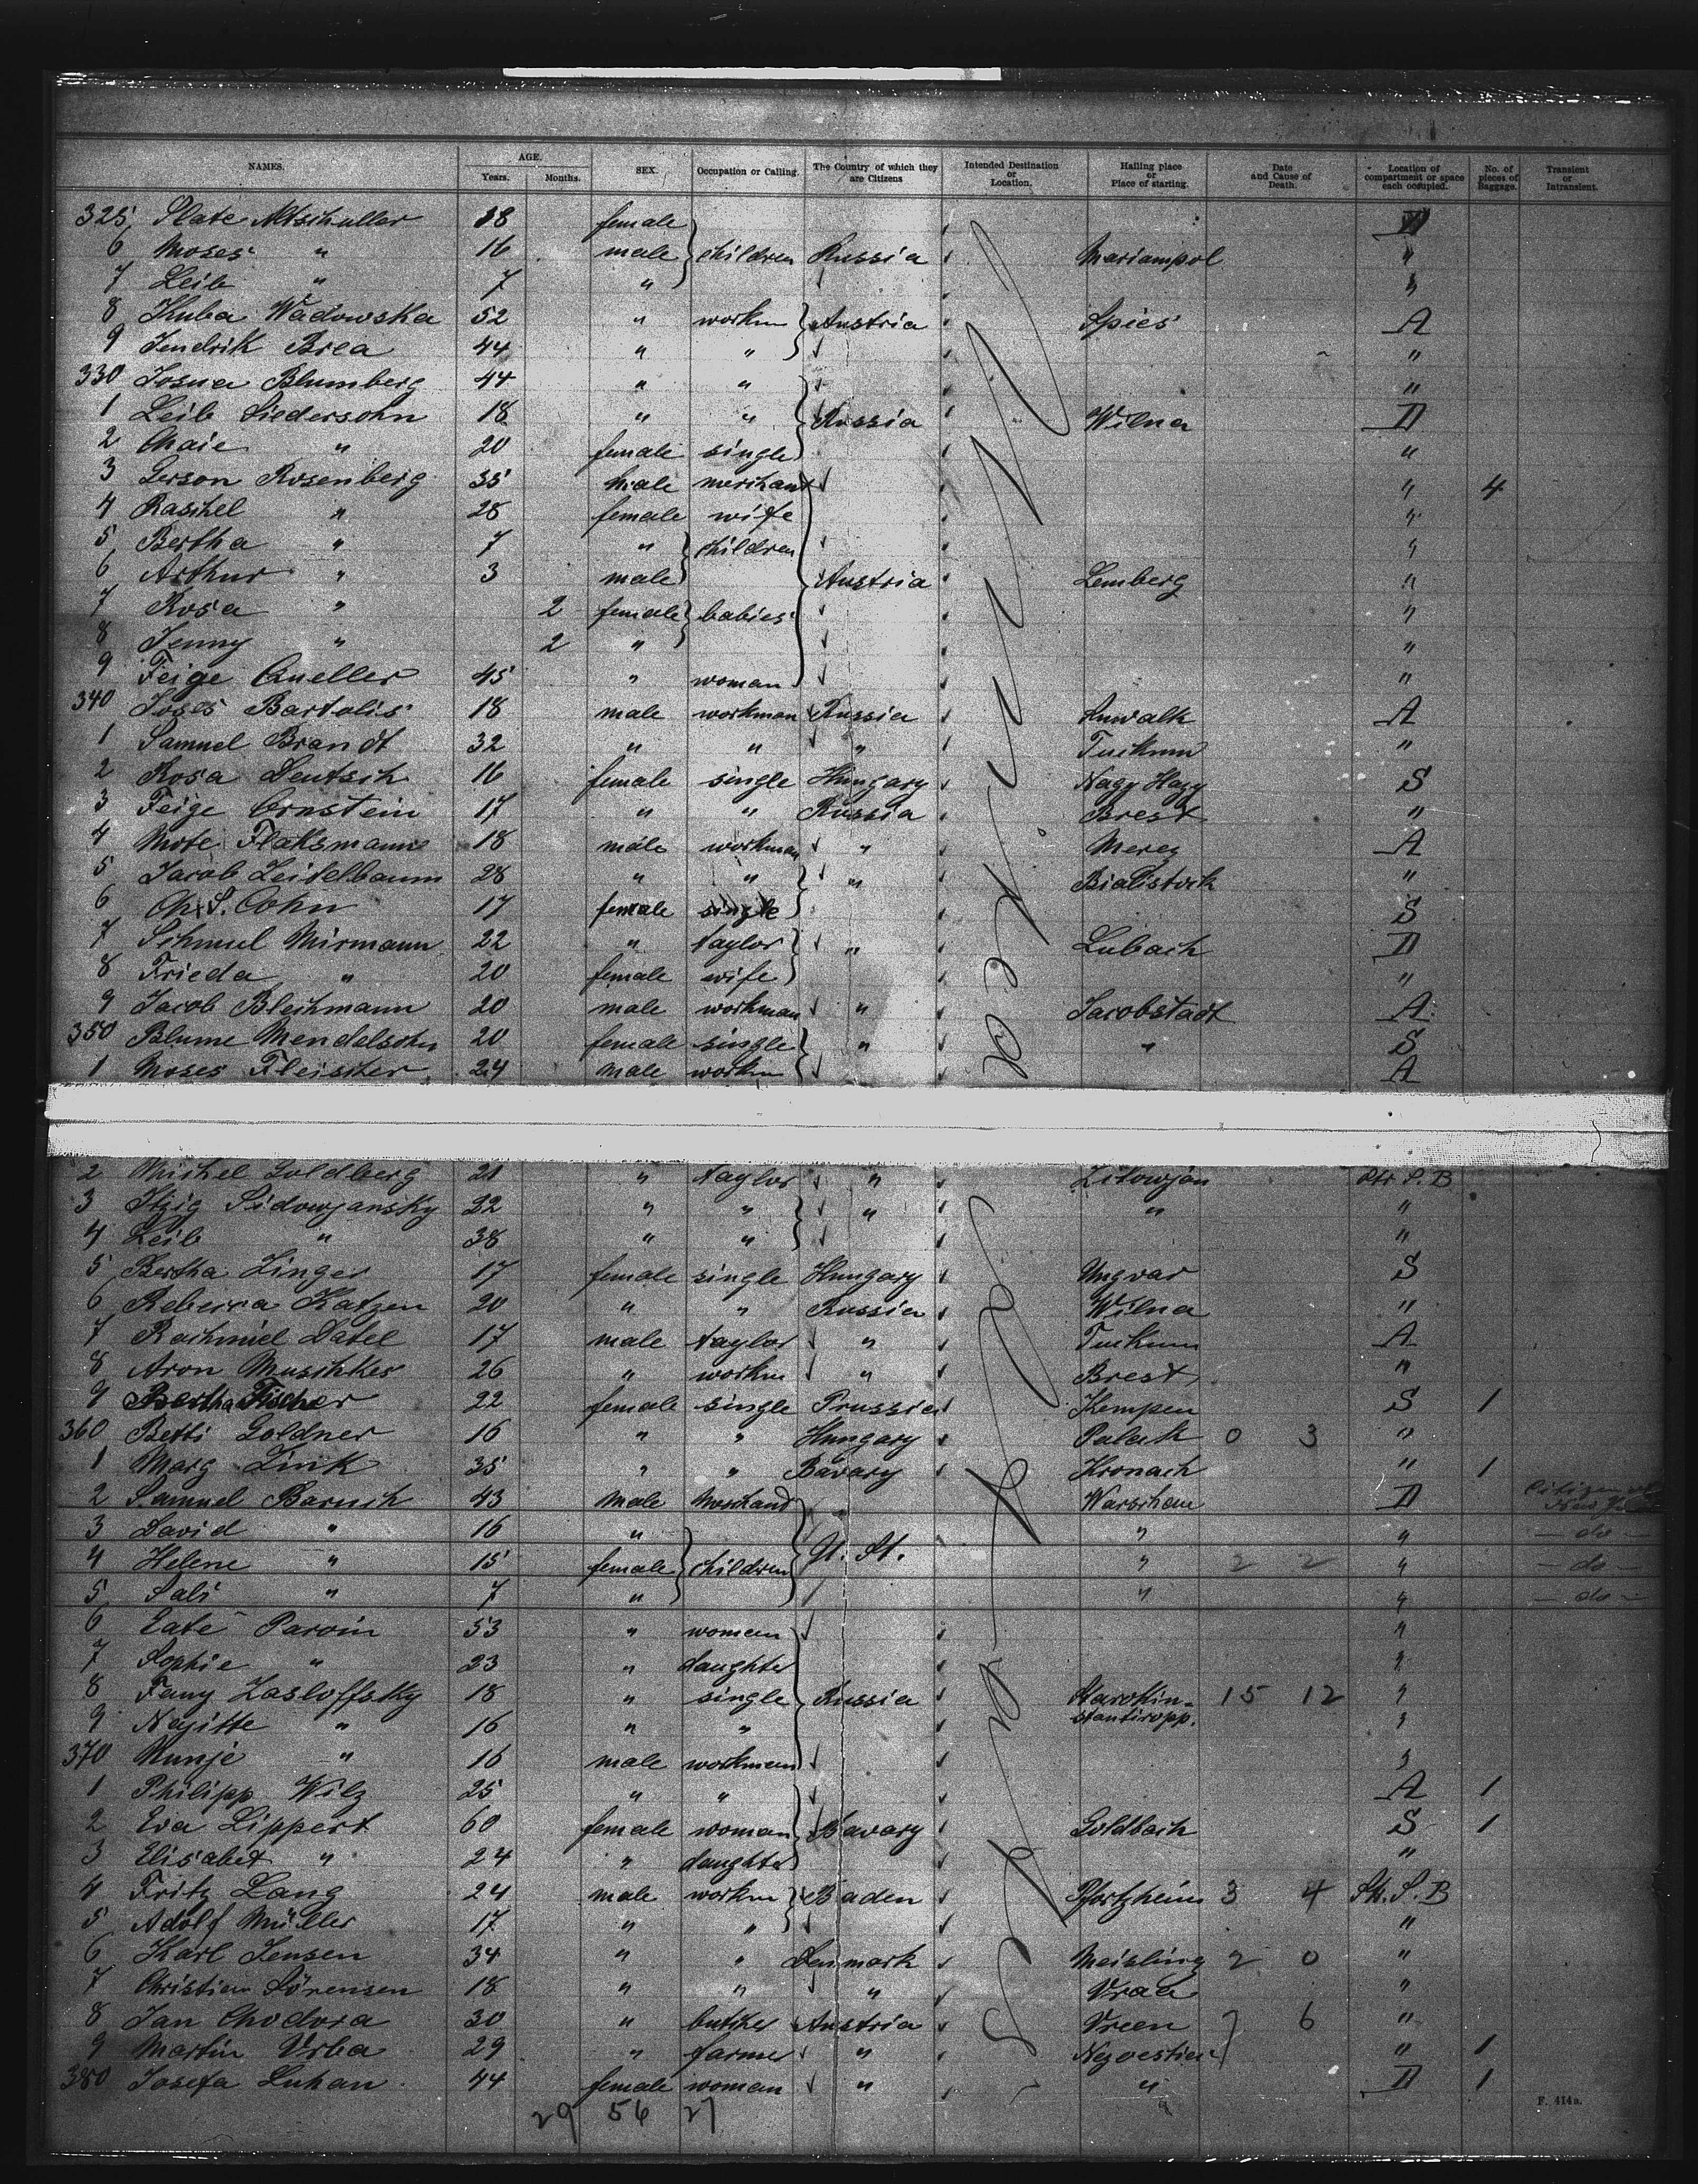 NAMES. AGE. Years. Months. SEX. Occupation or Calling. The Country of which they are Citizens Intended Destination or Location. Hailing place or Place of starting. Date and Cause of Death. Location of compartment or space each occupied. No. of pieces of Baggage. Transient or Intransient.
325 Altschuller 18 female
6 Moses " 16 male children Russia Mariampol "
7 Leib " 7 " "
8 Kuba Wadowska 52 " workm Austria Spies A
9 Jendrik Brea 44 " " "
330 Josua Blumberg 44 " " "
1 Leib Liedersohn 18 " " Russia Wilna D
2 Chaie " 20 female single "
3 Gerson Rosenberg 35 male merchant " 4
4 Raschel " 28 female wife "
5 Bertha " 7 " children "
6 Arthur " 3 male Austria Lemberg "
7 Rosa " 2 female babies "
8 Jenny " 2 " "
9 Feige Queller 45 " woman "
340 Joses Bartolis 18 male workman Russia Suwalk A
1 Samuel Brandt 32 " " " Tuckum "
2 Rosa Deutsch 16 female single Hungary Nagy Hagy S
3 Feige Ornstein 17 " " Russia Brest "
4 Mote Flaksmann 18 male workman " Merez A
5 Jacob Zeitelbaum 28 " " " Bialistock "
6 Ch. S. Cohn 17 female single S
7 Schmul Mirmann 22 " taylor " Lubach D
8 Frieda " 20 female wife "
9 Jacob Blechmann 20 male workman " Jacobstadt A
350 Blume Mendelsohn 20 female single " " S
1 Moses Fleischer 24 male workm A
2 Michel Goldberg 21 " taylor " Zitowjan Str. S. B
3 Itzig Sidowjansky 22 " " " " "
4 Leib " 38 " " "
5 Bertha Zinger 17 female single Hungary Ungvar S
6 Rebecca Katzen 20 " " Russia Wilna "
7 Rachmiel Datel 17 male taylor " Tuckum A
8 Aron Muschkes 26 " workm " Brest "
9 Bertha Fischer 22 female single Prussia Kempen S 1
360 Betti Goldner 16 " " Hungary Palack 0 3 "
1 Marg Zink 35 " " Bavary Kronach " 1
2 Samuel Baruch 43 Male Merchand Warschau D Citizen of
3 David " 16 " " " — do —
4 Helene " 15 female children U. St. " 2 2 " — do —
5 Sali " 7 " " " — do —
6 Parvin 53 " woman "
7 Sophie " 23 " daughter "
8 Fany Zasloffsky 18 " single Russia Starokin- 15 12 "
9 Nejitte " 16 " " stantinopp. "
370 Munje " 16 male workmen "
1 Philipp Wilz 25 " " A 1
2 Eva Lippert 60 female woman Bavary Goldbach S 1
3 Elisabet " 24 " daughter "
4 Fritz Lang 24 male workm Baden Pfortzheim 3 4 St. S. B
5 Adolf Müller 17 " " "
6 Karl Jensen 34 " " Denmark Meisling 2 0 "
7 Christian Sörensen 18 " " " Vraa "
8 Jan Chodora 30 " butcher Austria Vreen 7 6 "
9 Martin Vrba 29 " farmer " " 1
380 Josefa Luhan 44 female woman " " D 1
29 56 27
F. 414a.